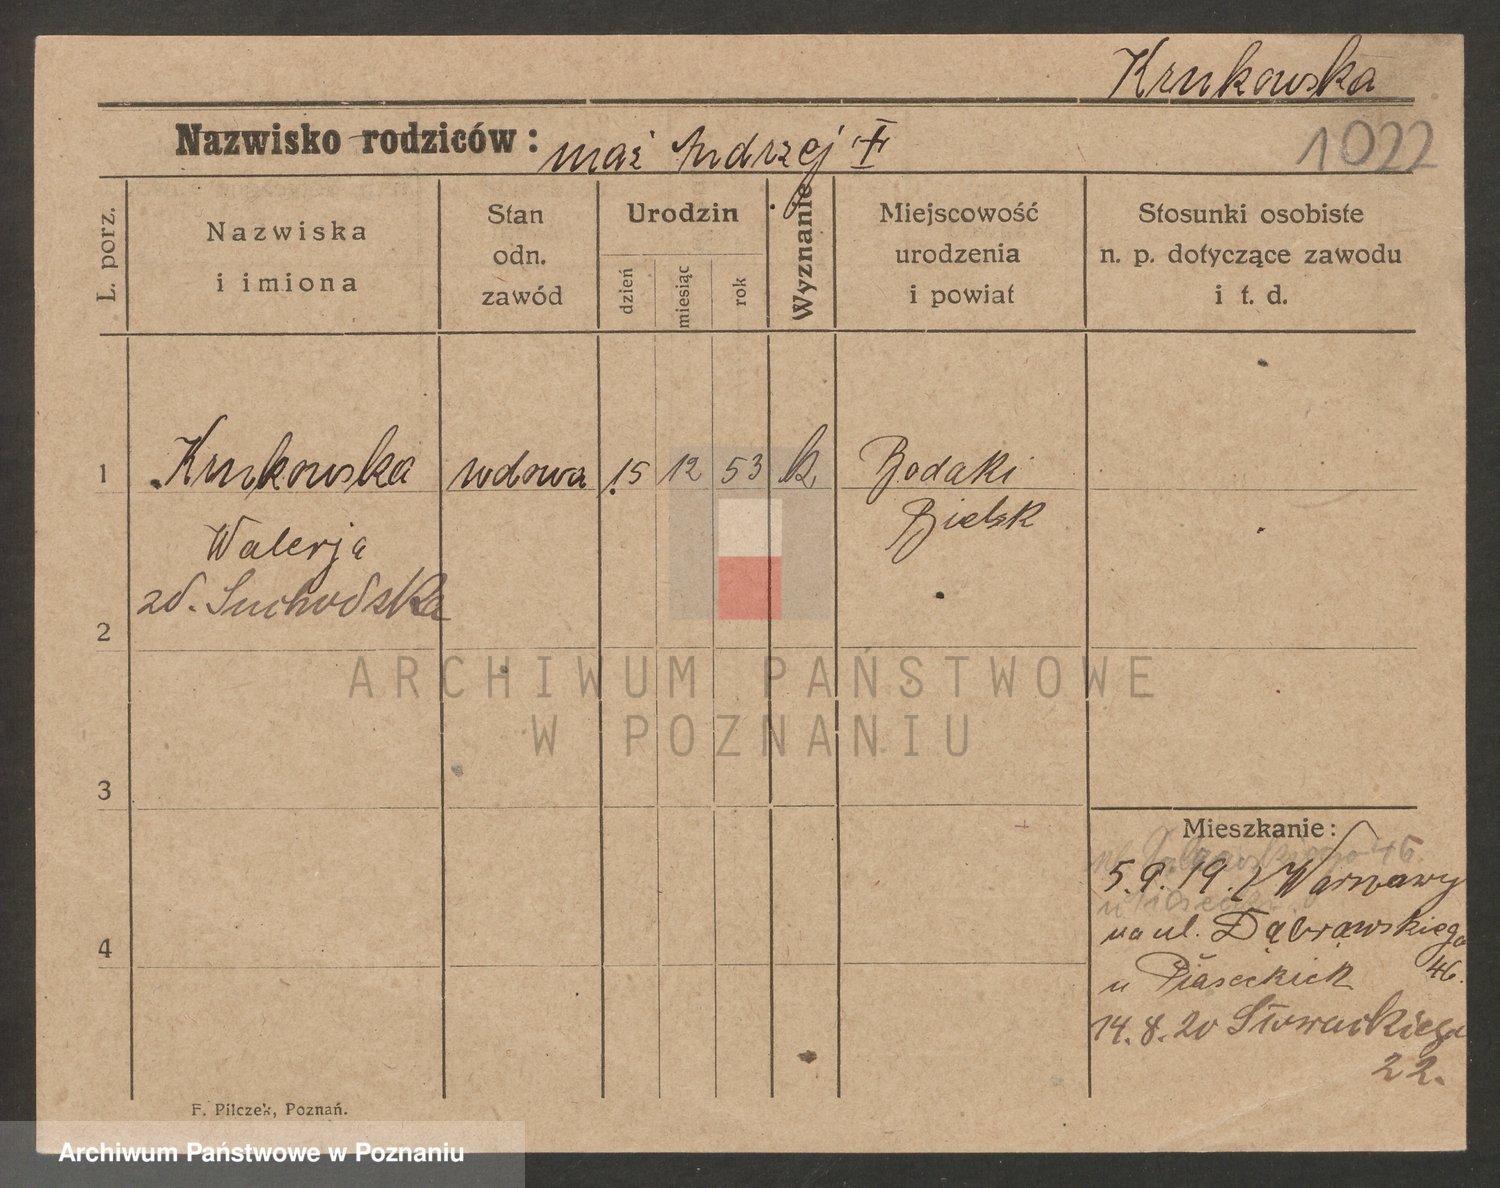 Krukowska
Nazwisko rodziców: mąż Andrzej †
1022
L. porz.
Nazwiska
i imiona
Stan
odn.
zawód
Urodzin
dzień
miesiąc
rok
Wyznanie
Miejscowość
urodzenia
i powiat
Stosunki osobiste
n. p. dotyczące zawodu
i t. d.
1 Krukowska wdowa 15 12 53 k. Bodaki
Bielsk
Walerja
zd. Suchodska
2
3
4
Mieszkanie:
5.9.19. z Warszawy
na ul. Dąbrowskiego
46.
u Piaseckich
14.8.20 Słowackiego
22.
F. Pilczek, Poznań.
ARCHIWUM PAŃSTWOWE
W POZNANIU
Archiwum Państwowe w Poznaniu